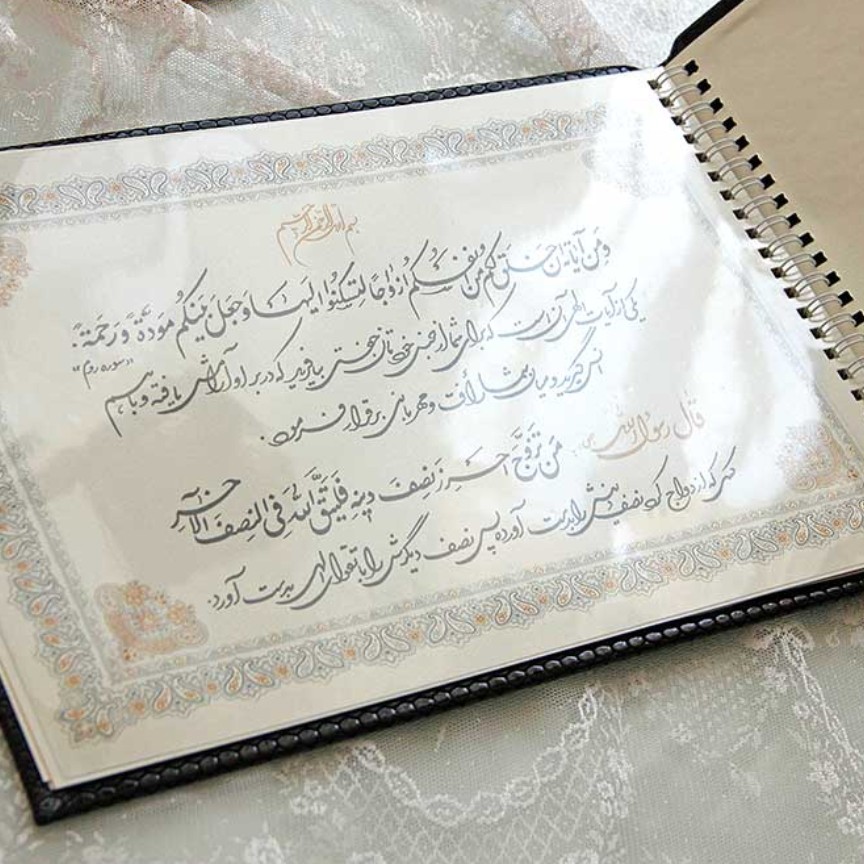 بسم الله الرحمن الرحیم
وَمِن آیاتِهِ اَن خَلَقَ لَکُم مِن اَنفُسِکُم اَزواجًا لِتَسکُنُوا اِلَیها وَجَعَلَ بَینَکُم مَوَدَّةً وَ رَحمَةً:
یکی از آیات الهی آن است که برای شما از جنس خودتان جفتی بیافرید که در بر او آرامش یافته و با هم "سوره روم"
انس گیرید و میان شما رأفت و مهربانی برقرار فرمود.
قال رسول الله
مَن تَزَوَّجَ اَحرَزَ نِصفَ دینِهِ فَلیَتَّقِ اللهَ فِی النِصفِ الآخَرِ
کسی که ازدواج کند نصف دینش را بدست آورده پس نصف دیگرش را با تقوای الهی بدست آورد.